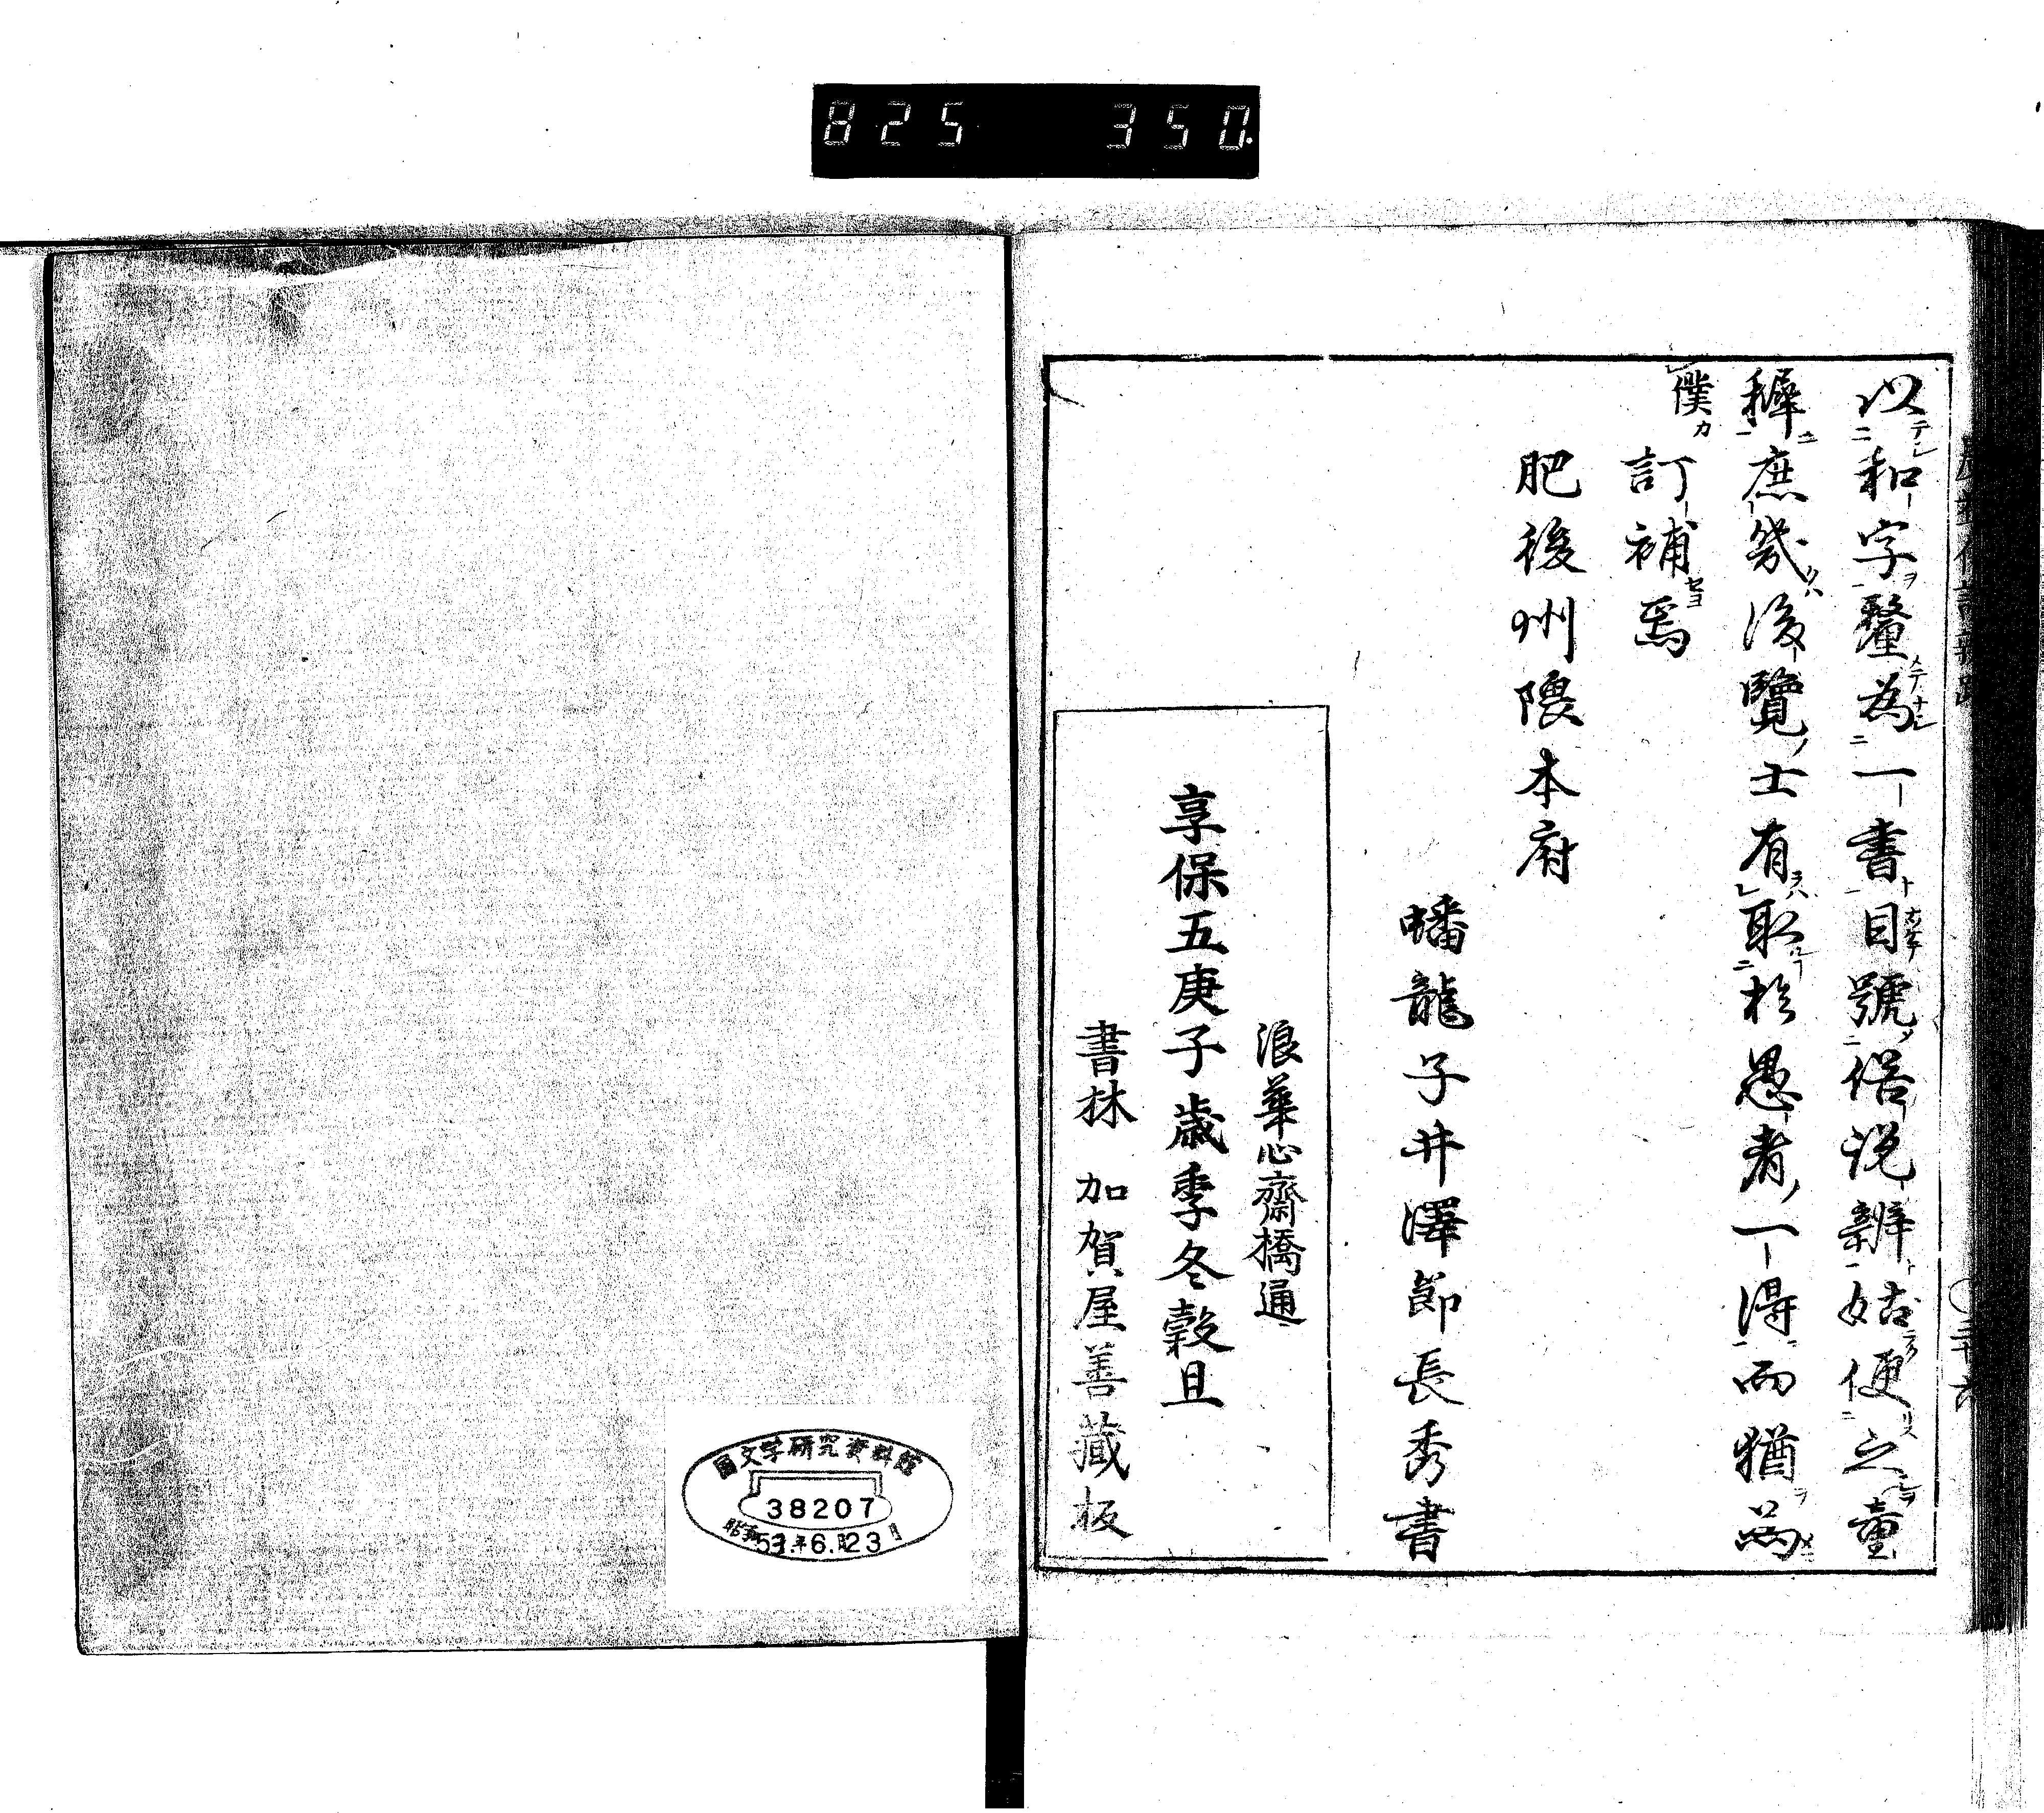 825 350
以和字釐為一書目號俗説辨姑便之童
穉庶幾後覽士有取於愚者一得而猶為
僕訂補焉
肥後州隈本府
蟠龍子井澤節長秀書
浪華心齋橋通
享保五庚子歳季冬穀旦
書林 加賀屋善藏板
國文学研究資料館
38207
昭和53年6月23日